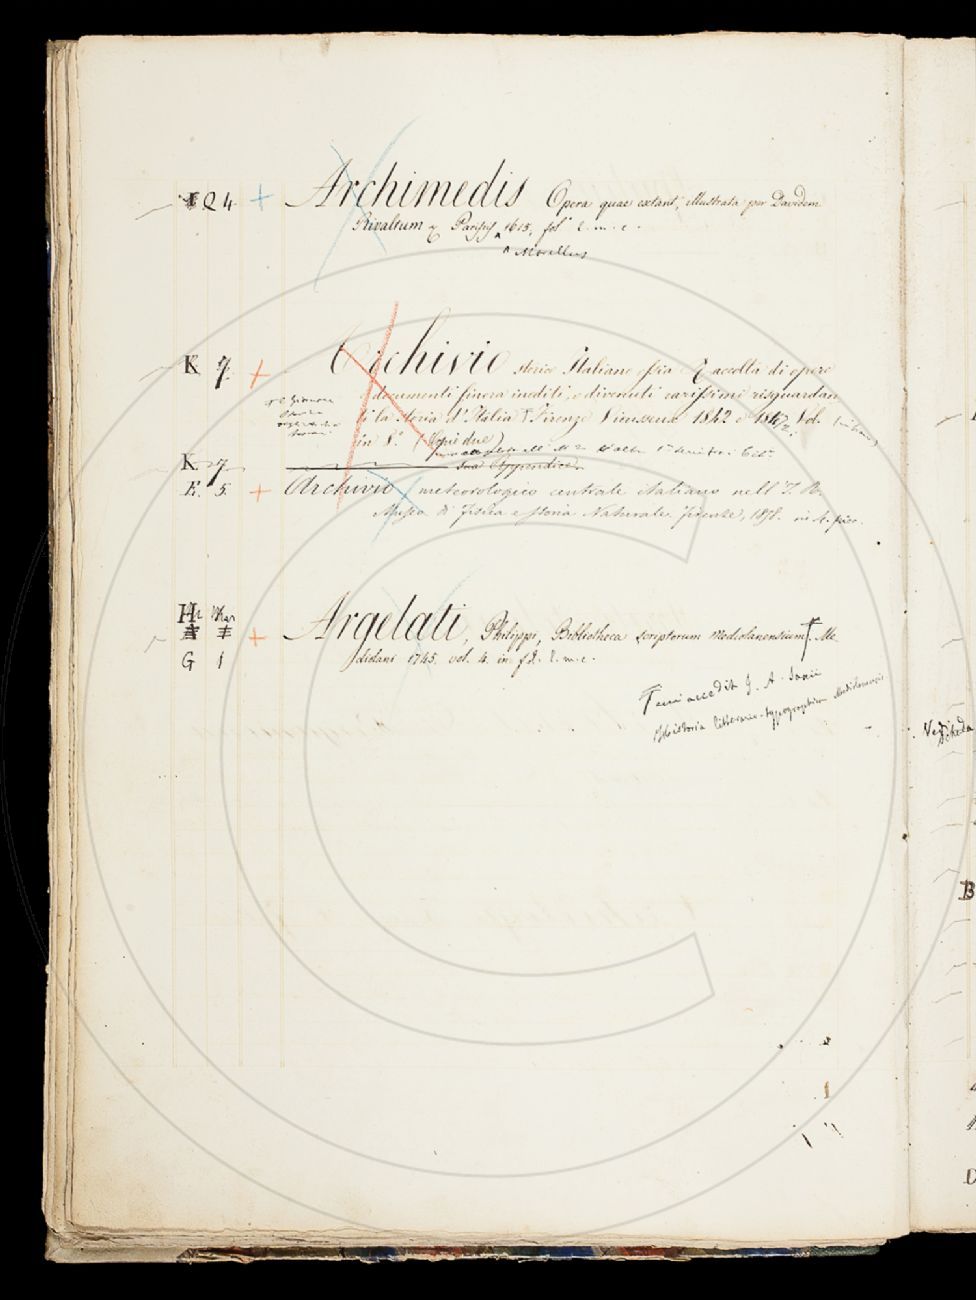 Q 4 + Archimedis Opera quae extant, illustrata per Davidem
Rivaltum Parisijs 1615, fol.
^ Morellus
K 7 + Archivio storico Italiano ossia Raccolta di opere
e documenti finora inediti, o divenuti rarissimi risguardan
ti la storia d'Italia Firenze Vieusseux 1842
in 8.° (Copie due)
K 7
Sua Appendice
E. 5. + Archivio meteorologico centrale italiano nell' I. R.
Museo di fisica e storia Naturale. Firenze, 1858. in 4. picc.
+ Argelati, Philippi, Bibliotheca scriptorum Mediolanensium. Me
G 1 diolani 1745. vol. 4. in f.°
accedit J. A. Saxii
Historia litterario-typographica Mediolanensis
Vedi
Scheda
B
D